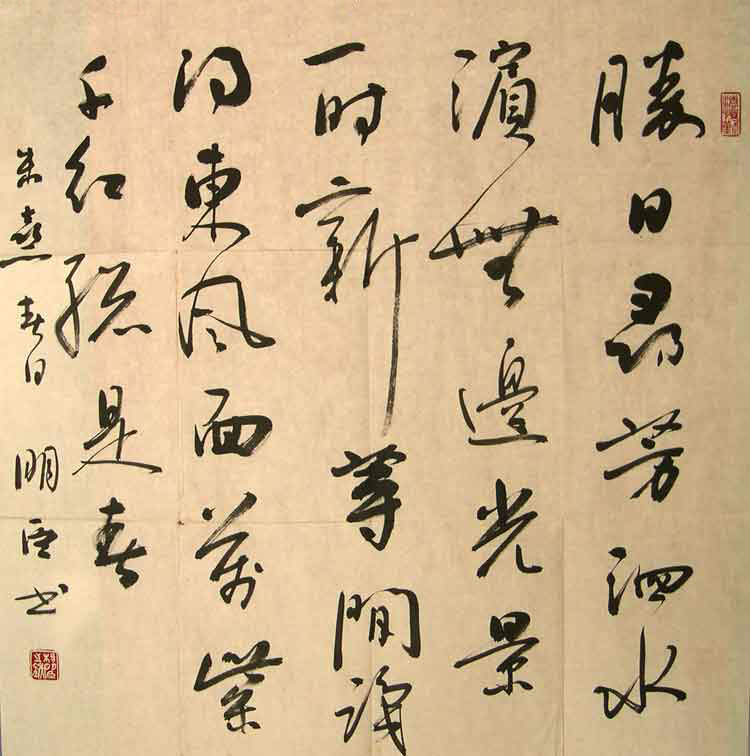 勝日尋芳泗水
濱無邊光景
一时新等間識
得東風面萬紫
千紅總是春
朱熹春日 明 书